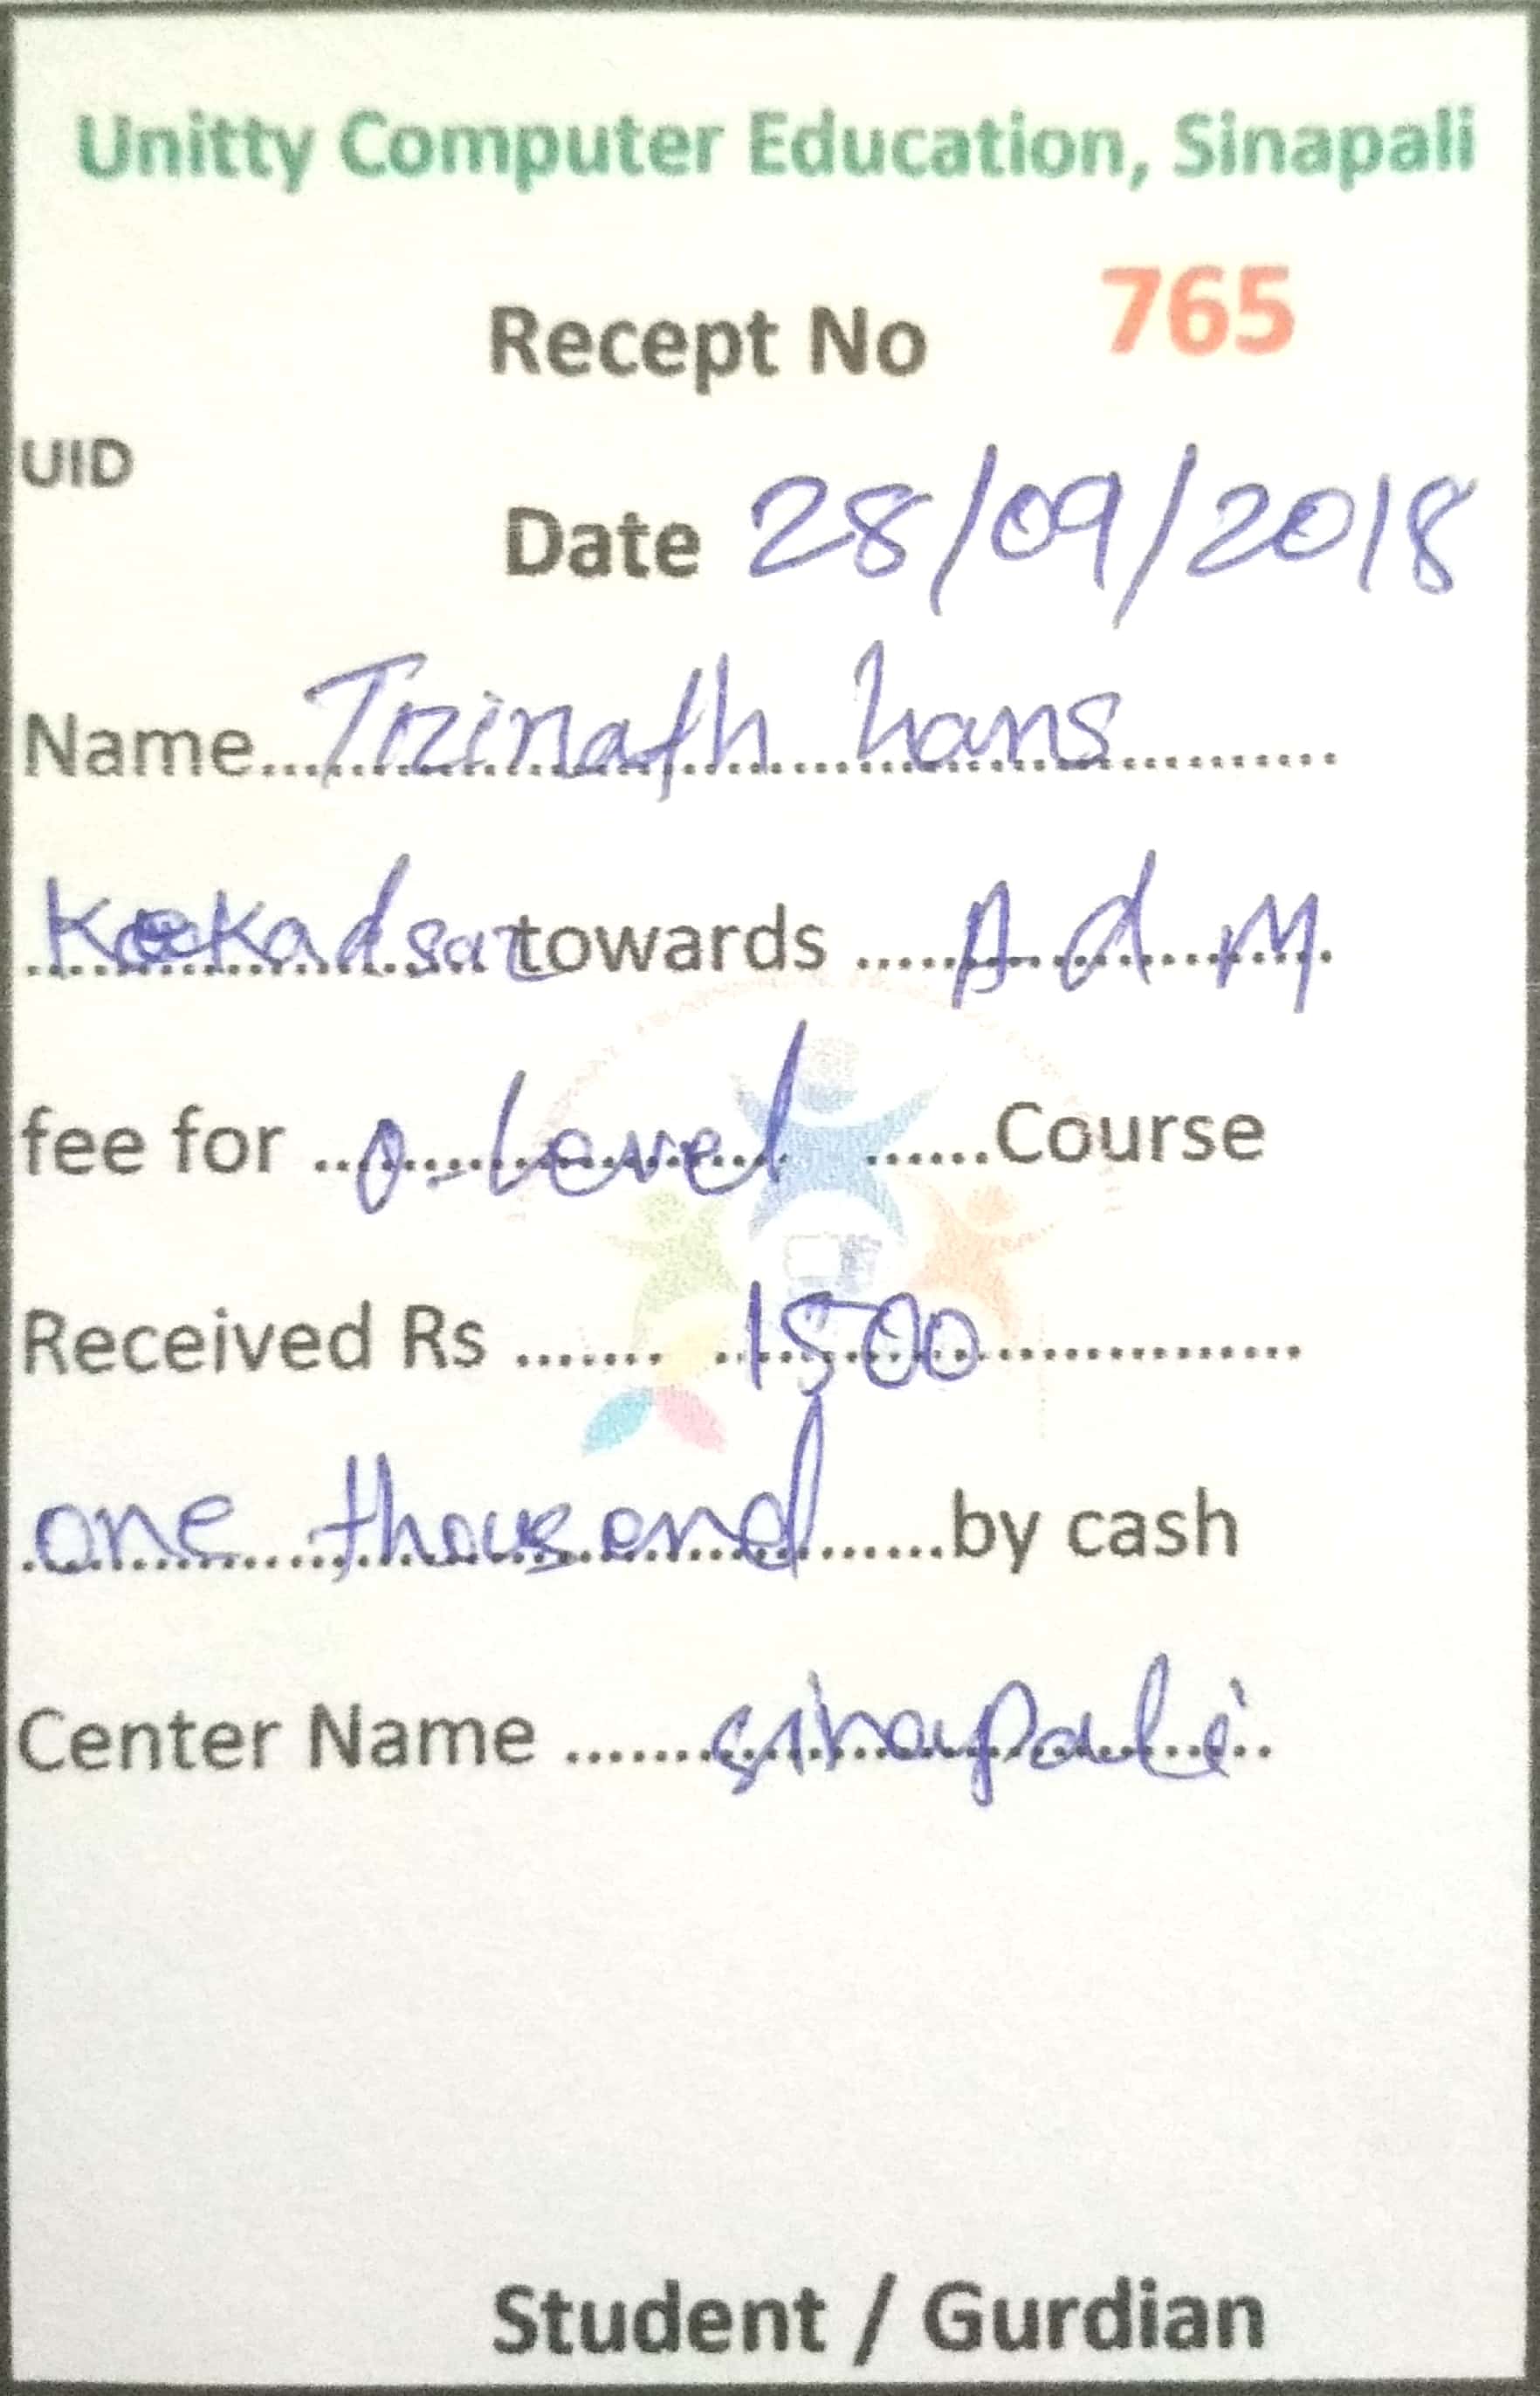 Unitty Computer Education, Sinapali
Recept No 765
UID
Date 28/09/2018
Name Trinath hans
towards A d M
fee for O-Level Course
Received Rs 1500
one thousand by cash
Center Name sinapali
Student / Gurdian